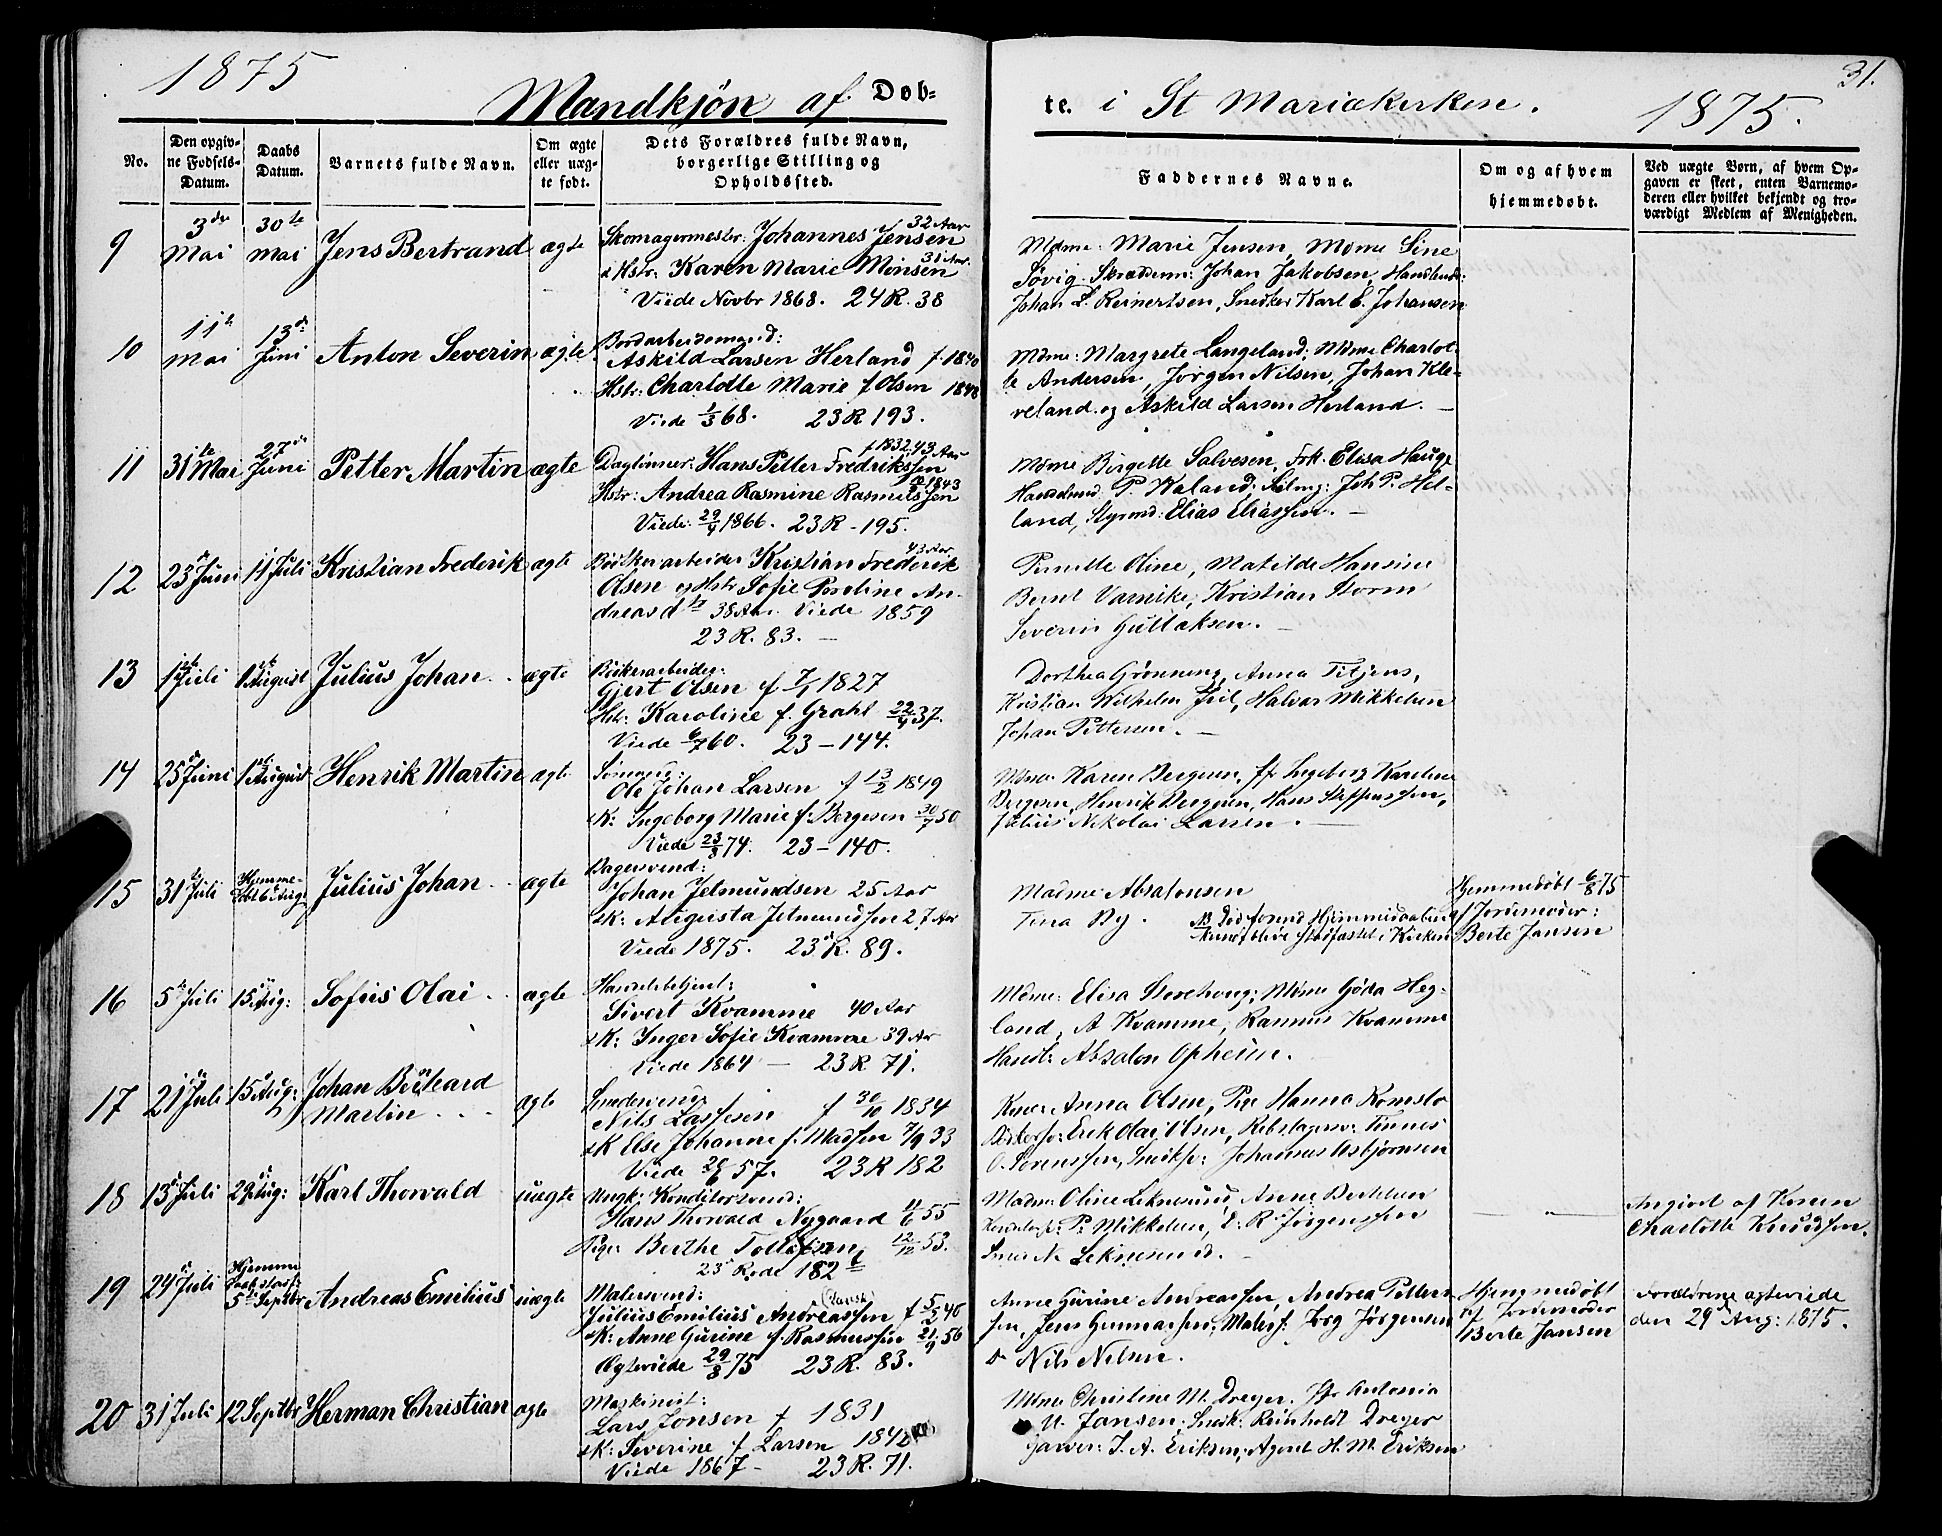 1875
31.
Mandkjøn af Døb=
te. i St Mariækirken. 1875.
No.
Den opgiv-
ne Fødsels-
Datum.
Daabs
Datum.
Barnets fulde Navn.
Om ægte
eller uæg-
te født.
Dets Forældres fulde Navn,
borgerlige Stilling og
Opholdssted.
Faddernes Navne.
Om og af hvem
hjemmedøbt.
Ved uægte Børn, af hvem Op-
gaven er skeet, enten Barnemo-
deren eller hvilket bekjendt og tro-
værdigt Medlem af Menigheden.
9
3die
Mai
30te
mai
Jens Bertrand
ægte
32 Aar
Skomagermester: Johannes Jensen
31 Aar.
& Hstr: Karen Marie Monsen
Viede Novbr 1868. 24 R. 38
Mdme: Marie Jensen, Mdme Sine
Søvig. Johan Jakobsen,
Johan L. Reinertsen, Snedker Karl E. Johansen
10
11te
mai
13de
Juni
Anton Severin
ægte
Bordarbeidsmand:
Askild Larsen Herland f. 1840
Hstr: Charlotte Marie f. Olsen 1848
Viede 1/3 68. 23 R 193.
Mdme: Margrete Langeland; Mdme Charlot-
te Andersen, Jørgen Nilsen, Johan Kle-
veland og Askild Larsen Herland.
11
31te Mai
27de
Juni
Petter Martin
ægte
f. 1832 43 Aar
Daglønner: Hans Petter Fredriksen
1843
Hstr: Andrea Rasmine Rasmussen
Viede: 29/9 1866. 23 R - 195.
Mdme Birgette Salvesen, Frk. Elisa Hauge
P. Waland: Joh P. Hel-
land, Styrmd: Elias Eliassen.
12
23d Juni
11 Juli
Kristian Frederik
ægte
43 Aar
Bødkerarbeider Kristian Frederik
Olsen og Hstr Sofie Paroline An-
dreasdtr 38 Aar. Viede 1859
23 R. 83.
Pernille Oline, Matilde Hansine
Bernt Varnike, Kristian Storm
Severin Gullaksen.
13
1ste Juli
1ste August
Julius Johan
ægte
Bødkerarbeider:
Gjert Olsen f 7/1 1827
Hstr: Karoline f. Grahl 22/9 37.
Viede 6/7 60. 23 - 144.
Dorthea Grønning, Anna Titjens,
Kristian Wilhelm Halvor Mikkelsen
Johan Pettersen.
14
25d Juni
1ste August
Henrik Martin
ægte
Sømand:
Ole Johan Larsen f 13/2 1849
& K: Ingeborg Marie f. Bergesen 30/7 50
Viede 23/8 74. 23 - 140.
Mdme Karen Bergesen, Ingeborg Karoline
Bergesen, Henrik Bergesen, Hans Steffensen,
Julius Nikolai Larsen.
15
31d Juli
Hjemme-
døbt 6 Aug.
Julius Johan
ægte
Bagersvend:
Johan Jelmundsen 25 Aar
& K: Augusta Jelmundsen 27 Aar
Viede 1875. 23 R. 89.
Madme Absalonsen
Tina By.
NB Død forend Hjemmedaaben
kunde blive stadfæstet i Kirken
Hjemmedøbt 6/8 75
af Jordemoder:
Berte Jansen
16
5d Juli
15 Aug:
Sofus Olai
ægte
Handelsbetjent:
Sivert Kvamme 40 Aar
& K: Inger Sofie Kvamme 39 Aar
Viede 1864 - 23 R. 71.
Mdme: Elisa Storehoug; Mdme Gøda Heg-
land, A Kvamme, Rasmus Kvamme
Handl: Absalon Opheim.
17
21d Juli
15 Aug:
Johan Berhard
Martin
ægte
Smedesvend
Nils Lassesen f 30/10 1834
& K Else Johanne f. Madsen 7/9 33
Viede 26/6 57. 23 R 182
Kone Anna Olsen, Pige Hanna Romslo
Erik Olai Olsen, Rebslagersv: Tinnes
O. Sørenssen, Johannes Asbjørnsen
18
13d Juli
29 Aug:
Karl Thorvald
uægte
Ungk: Konditorsvend:
Hans Thorvald Nygaard 11/6 55
Pige: Berthe Tollefsen 12/12 53.
23d Rode 182
Madme Oline Leknesund, Anne Bertelsen
P. Mikkelsen, E. R. Jørgenssen
N. Leknesund.
Angivet af Karen
Charlotte Knudssen.
19
24d Juli
Hjemme
5te Septbr
Andreas Emilius
uægte
Malersvend: (dansk)
Julius Emilius Andreassen f 5/2 46
& K: Anne Gurine f. Rasmussen 21/9 56
Ægteviede 29/8 75 23 R. 83.
Anne Gurine Andreassen, Andrea Petter-
sen, Jens Gunnarsen; Malers. Jørg Jørgensen
& Nils Nilsen.
Hjemmedøbt
af Jordemoder
Berte Jansen
Forældrene ægteviede
den 29d Aug: 1875.
20
31 Juli
12 Septbr
Herman Christian
ægte
Maskinist:
Lars Jonsen f 1831
& K: Severine f. Larsen 1842
Viede 1867 - 23 R. 71.
Mdme Christine M. Dreger. Antonia
U. Jansen; Snedk: Reinholdt Dreger
Garver: J. A. Eriksen, Agent H. M. Eriksen